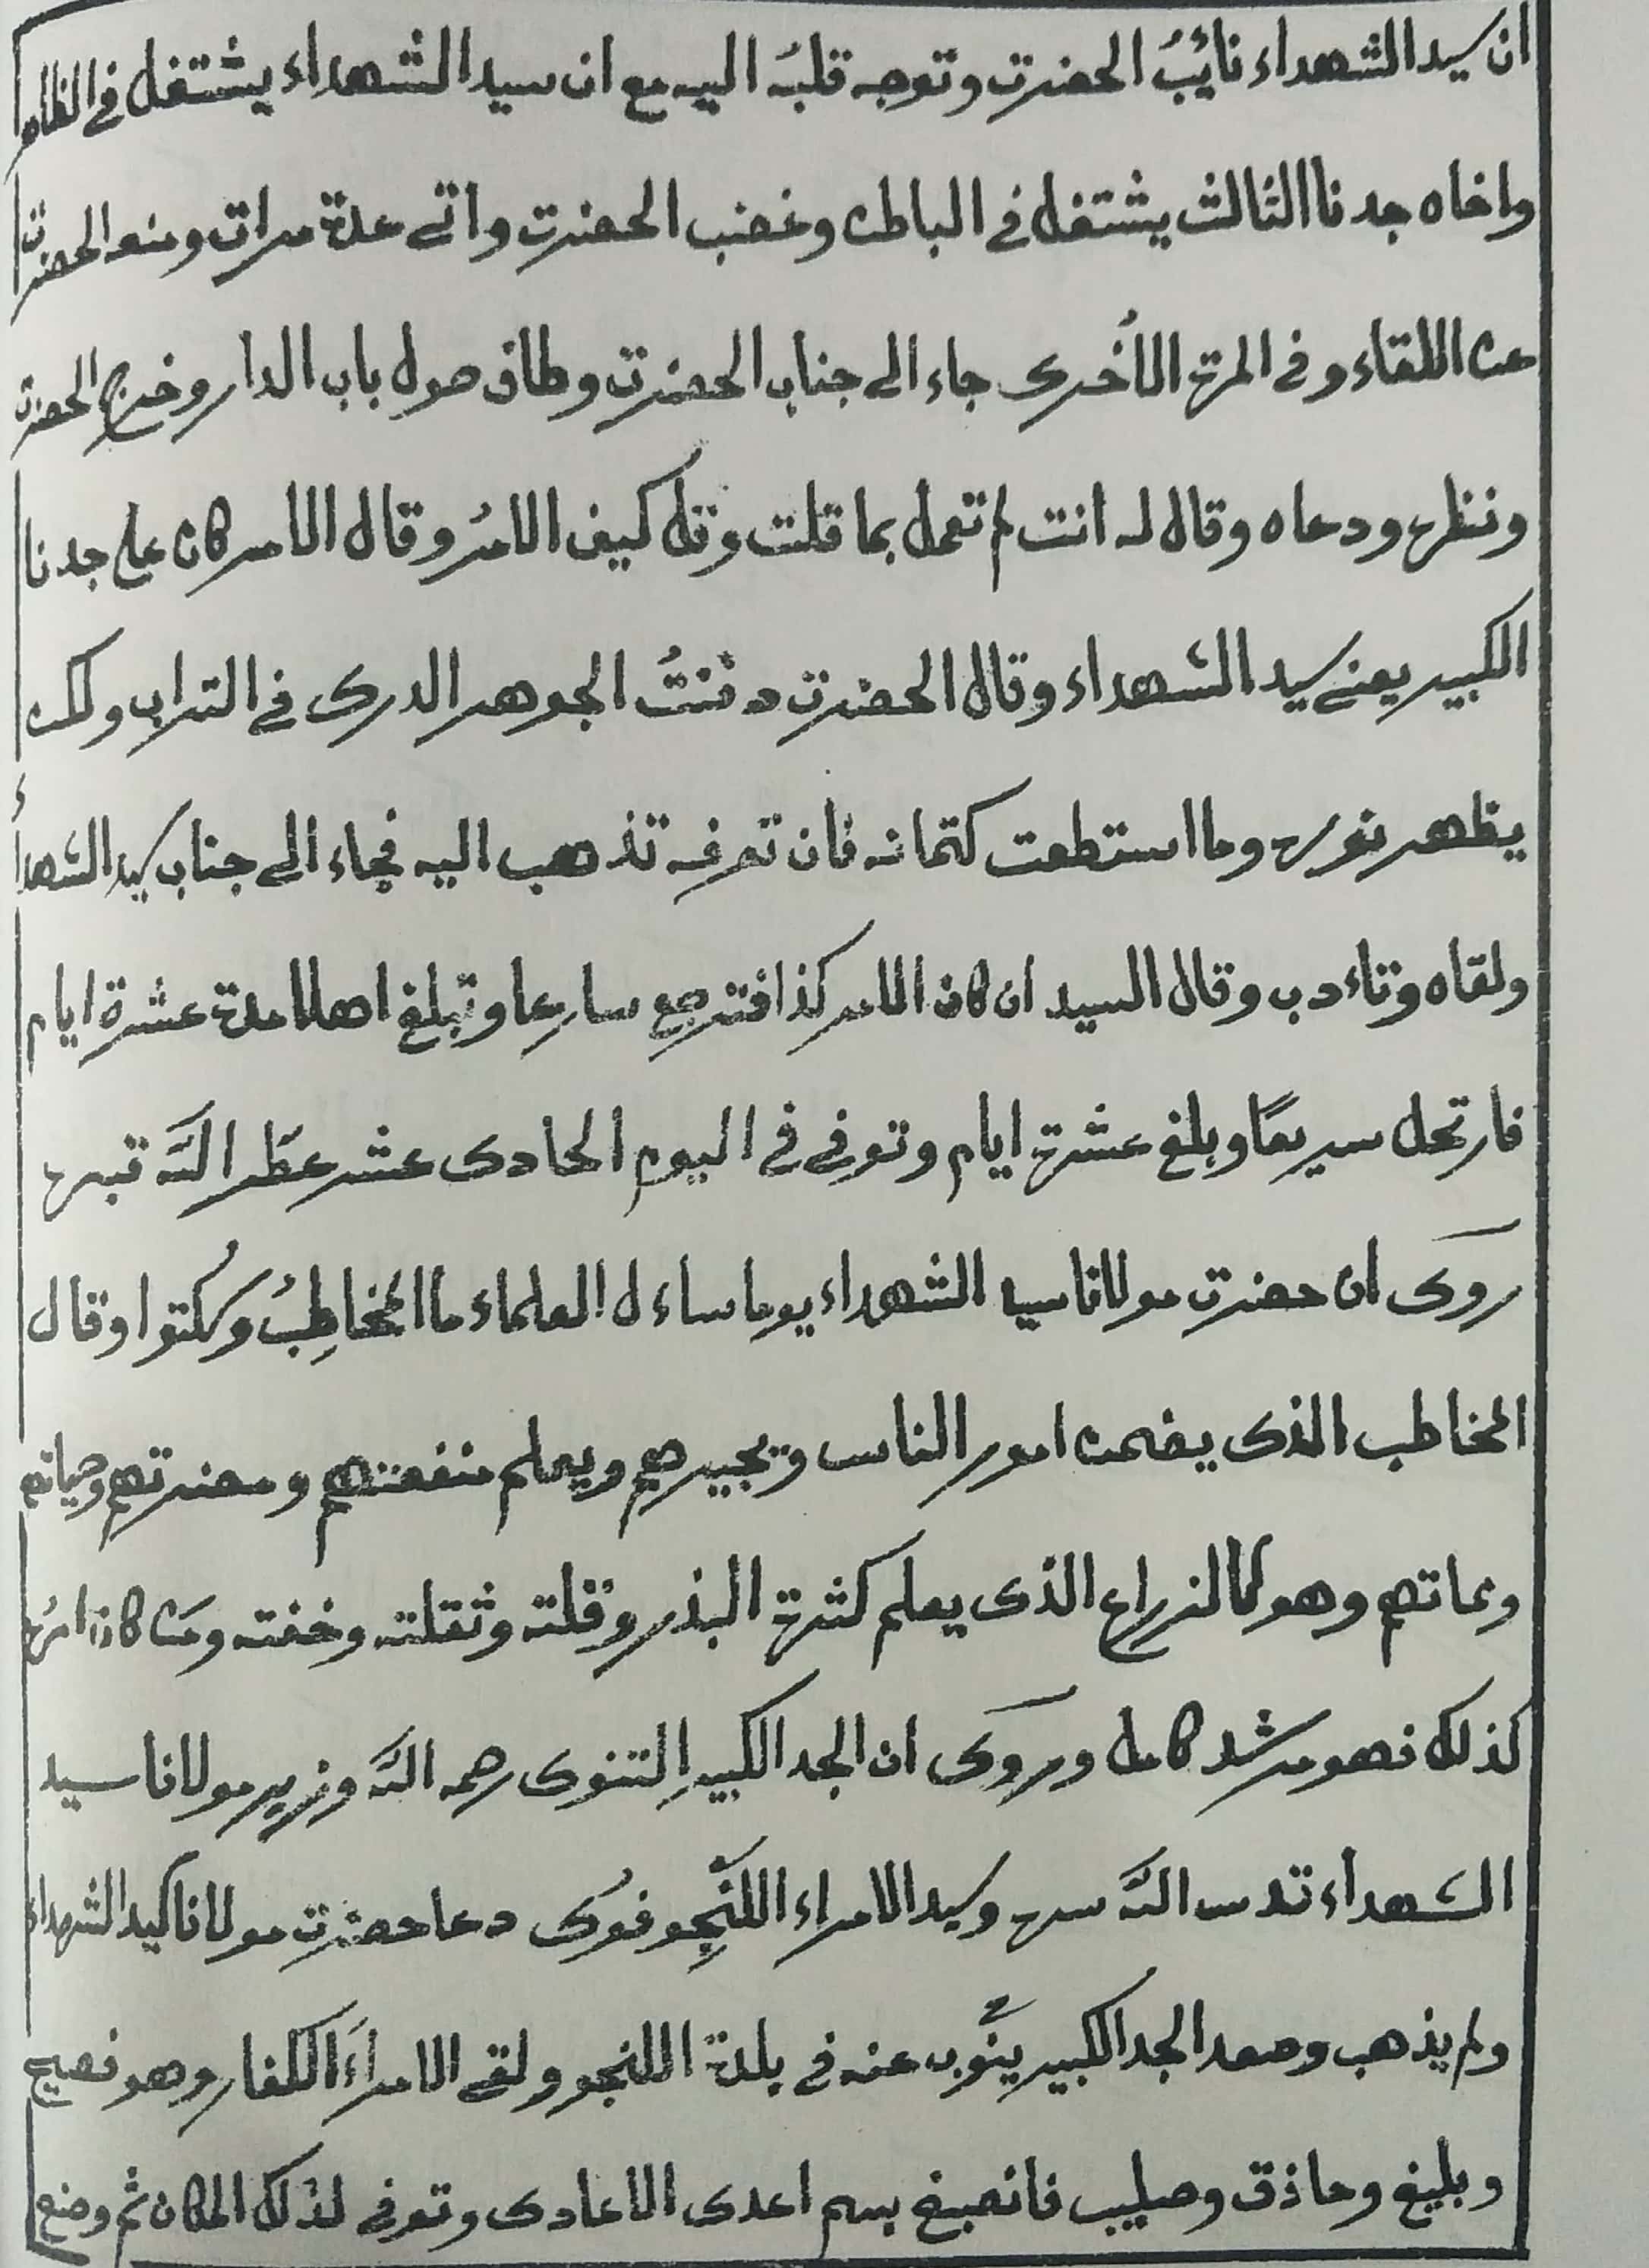 ان سيد الشهداء نائبُ الحضرت وتوجه قلبه اليه مع ان سيد الشهداء يشتغل في الظاهر
واخاه جدنا الثالث يشتغل في الباطن وغضب الحضرت واتى عدة مرات ومنع الحضرت
عن اللقاء وفي المرة الأخرى جاء الى جناب الحضرت وطاف حول باب الدار وخرج الحضرت
ونظره ودعاه وقال له انت لم تعمل بما قلت وقل كيف الامرُ وقال الامر كان على جدنا
الكبير يعنى سيد الشهداء وقال الحضرت دفنتُ الجوهر الدرى في التراب ولكن
يظهر نوره وما استطعت كتمانه فان تعرفه تذهب اليه فجاء الى جناب سيد الشهداء
ولقاه وتاءدب وقال السيد ان كان الامر كذا فترجع سارعا وتبلغ اهلا مدة عشرة ايام
فارتحل سريعًا وبلغ عشرة ايام وتوفى في اليوم الحادى عشر عطّر اللّه قبره
روى ان حضرت مولانا سيد الشهداء يوما ساءل العلماء ما المخاطِبُ وسُكتوا وقال
المخاطب الذى يضمن امور الناس ويجيرهم ويعلم منفعتهم ومضرتهم وحياتهم
ومماتهم وهو كالزراع الذى يعلم كثرة البذر وقلته وثقلته وخفته ومن كان امره
كذلك فهو مرشد كامل وروى ان الجد الكبير التنوى رحمه اللّه وزير مولانا سيد
الشهداء قدس اللّه سره وسيد الامراء اللنجوفوى دعا حضرت مولانا سيد الشهداء
ولم يذهب وصعد الجد الكبير ينوب عنه في بلدة اللنجو ولقى الامراءَ الكفار وهو فصيح
وبليغ وحاذق وصليب فانصبغ بسم اعدى الاعادى وتوفى لذلك المكان ثم وضع